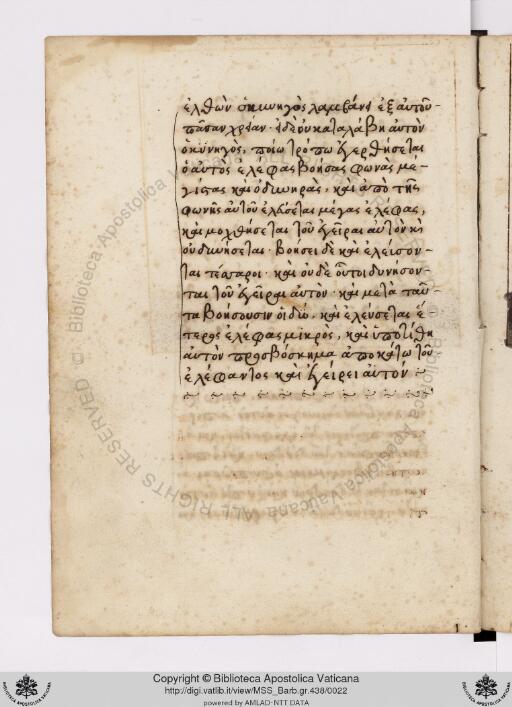 ἐλθὼν ὁ κυνηγὸς λαμβάνει ἐξ αὐτοῦ
πᾶσαν χρείαν· εἰ δὲ οὐ καταλάβῃ αὐτὸν
ὁ κύνηγὸς, ποίω τρόπω ἐγερθήσεται
ὁ αὐτὸς ἐλέφας βοήσας φωνὰς με-
γίστας καὶ ὀδυνηρὰς, καὶ ἀπὸ τῆς
φωνῆς αὐτοῦ ἐλεύσεται μέγας ἐλέφας,
καὶ μοχθήσεται τοῦ ἐγεῖραι αὐτὸν καὶ
οὐ δυνήσεται· βοήσει δὲ καὶ ἐλεύσον-
ται τέσσαροι· καὶ οὐδὲ οὗτοι δυνήσον-
ται τοῦ ἐγεῖραι αὐτὸν· καὶ μετὰ ταῦ-
τα βοήσουσιν οἱ δύο, καὶ ἐλεύσεται ἕ-
τερος ἐλέφας μικρὸς, καὶ ὑποτίθῃ
αὐτὸν προβόσκημα ἀποκάτω τοῦ
ἐλέφαντος καὶ ἐγείρει αὐτόν
© Biblioteca Apostolica Vaticana ALL RIGHTS RESERVED
Copyright © Biblioteca Apostolica Vaticana
http://digi.vatlib.it/view/MSS_Barb.gr.438/0022
powered by AMLAD-NTT DATA